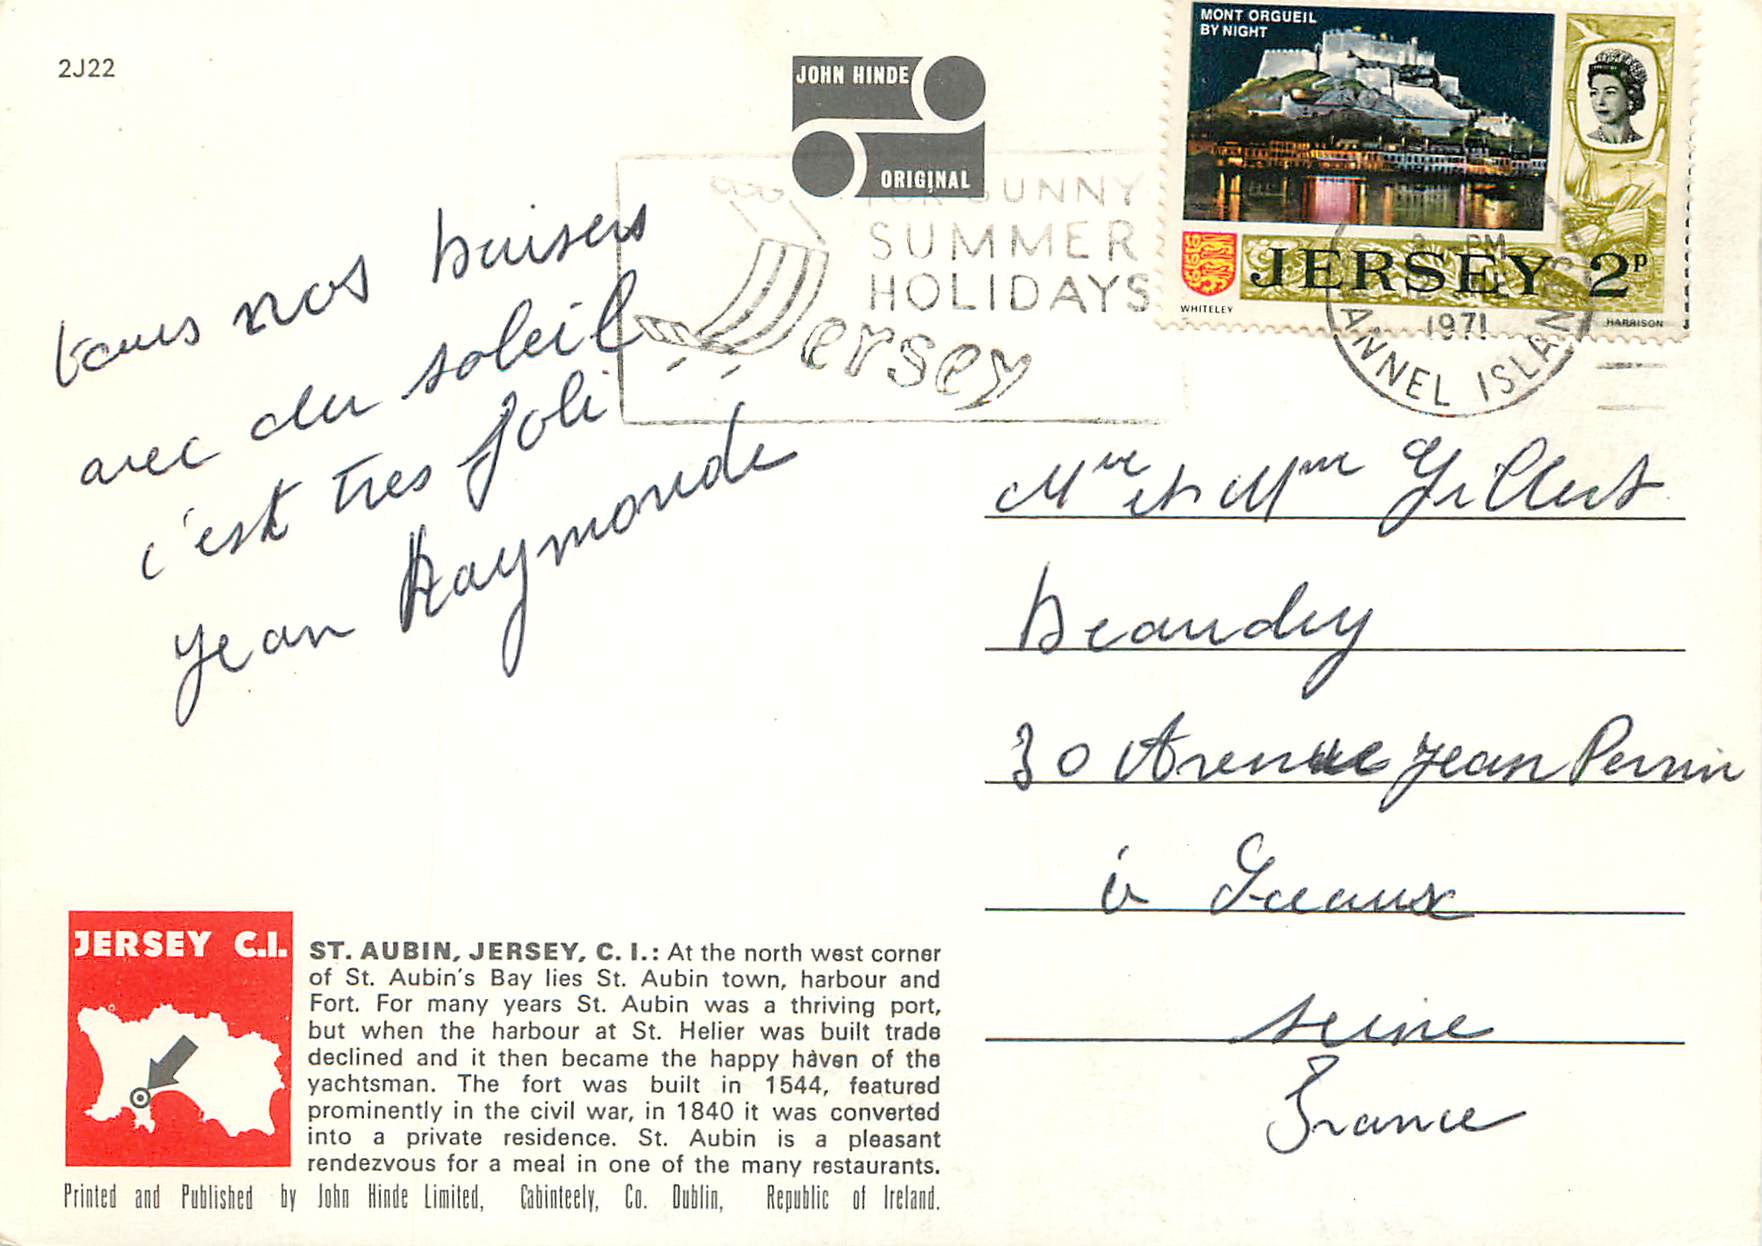 2J22
JOHN HINDE
ORIGINAL
MONT ORGUEIL
BY NIGHT
JERSEY 2P
WHITELEY
HARRISON
FOR SUNNY
SUMMER
HOLIDAYS
Jersey
PM
1971
CHANNEL ISLANDS
tous nos baisers
avec du soleil
c'est tres joli
Jean Raymonde
Mre et Mme Gilbert
Beaudry
30 Avenue Jean Perrin
à Sceaux
Seine
France
JERSEY C.I.
ST. AUBIN, JERSEY, C. I.: At the north west corner
of St. Aubin's Bay lies St. Aubin town, harbour and
Fort. For many years St. Aubin was a thriving port,
but when the harbour at St. Helier was built trade
declined and it then became the happy haven of the
yachtsman. The fort was built in 1544, featured
prominently in the civil war, in 1840 it was converted
into a private residence. St. Aubin is a pleasant
rendezvous for a meal in one of the many restaurants.
Printed and Published by John Hinde Limited, Cabinteely, Co. Dublin, Republic of Ireland.